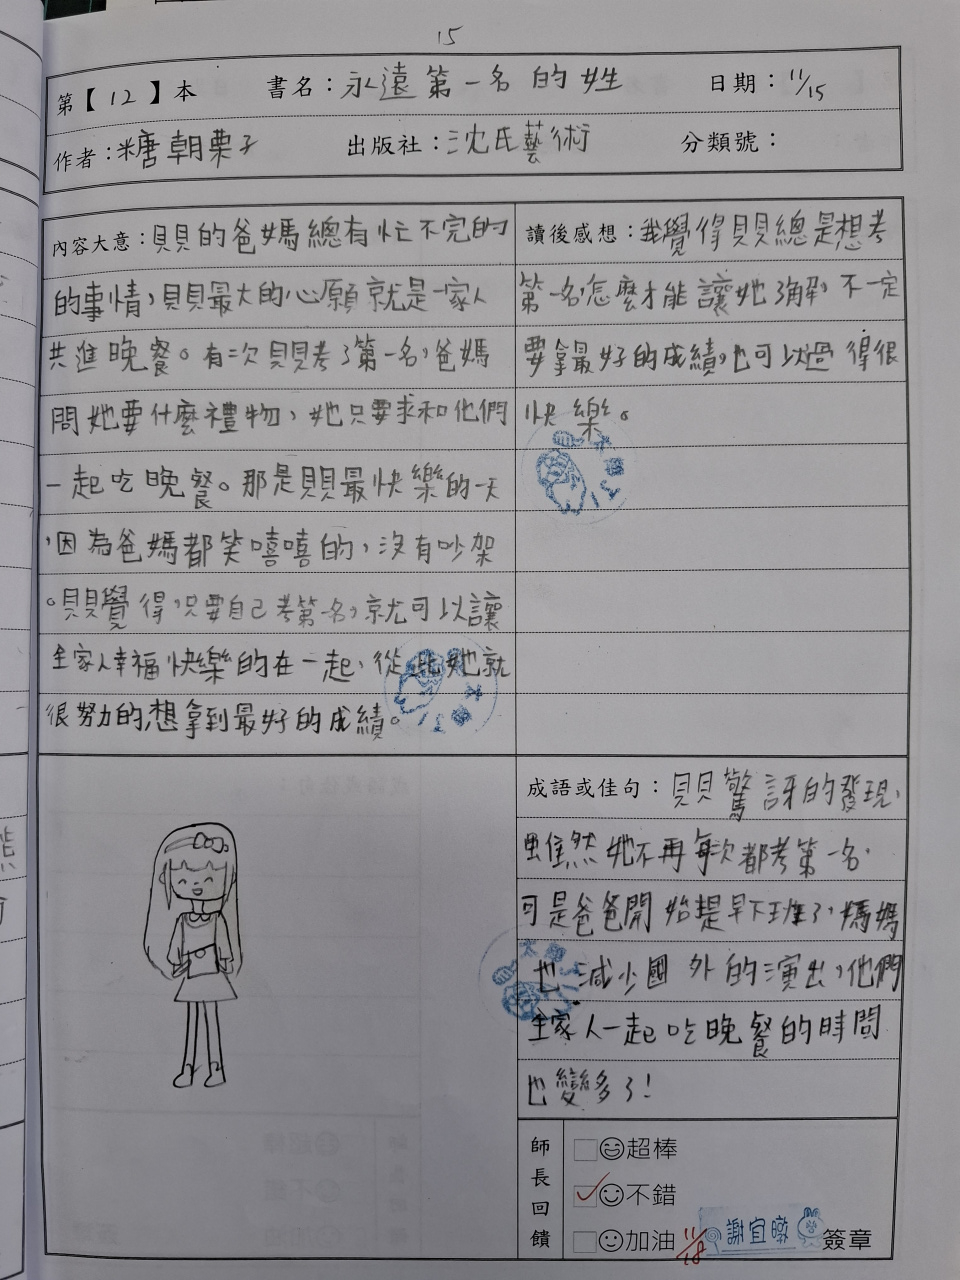 15
第【12】本 書名：永遠第一名的姓 日期：11/15
作者：糖朝栗子 出版社：沈氏藝術 分類號：
內容大意：貝貝的爸媽總有忙不完的
的事情，貝貝最大的心願就是一家人
共進晚餐。有一次貝貝考了第一名，爸媽
問她要什麼禮物，她只要求和他們
一起吃晚餐。那是貝貝最快樂的一天
，因為爸媽都笑嘻嘻的，沒有吵架
。貝貝覺得，只要自己考第一名，就可以讓
全家人幸福快樂的在一起，從此她就
很努力的，想拿到最好的成績。
讀後感想：我覺得貝貝總是想考
第一名，怎麼才能讓她了解，不一定
要拿最好的成績，也可以過得很
快樂。
成語或佳句：貝貝驚訝的發現，
雖然她不再每次都考第一名，
可是爸爸開始提早下班了，媽媽
也減少國外的演出，他們
全家人一起吃晚餐的時間
也變多了！
師長回饋
超棒
不錯
加油 11/18 謝宜 簽章